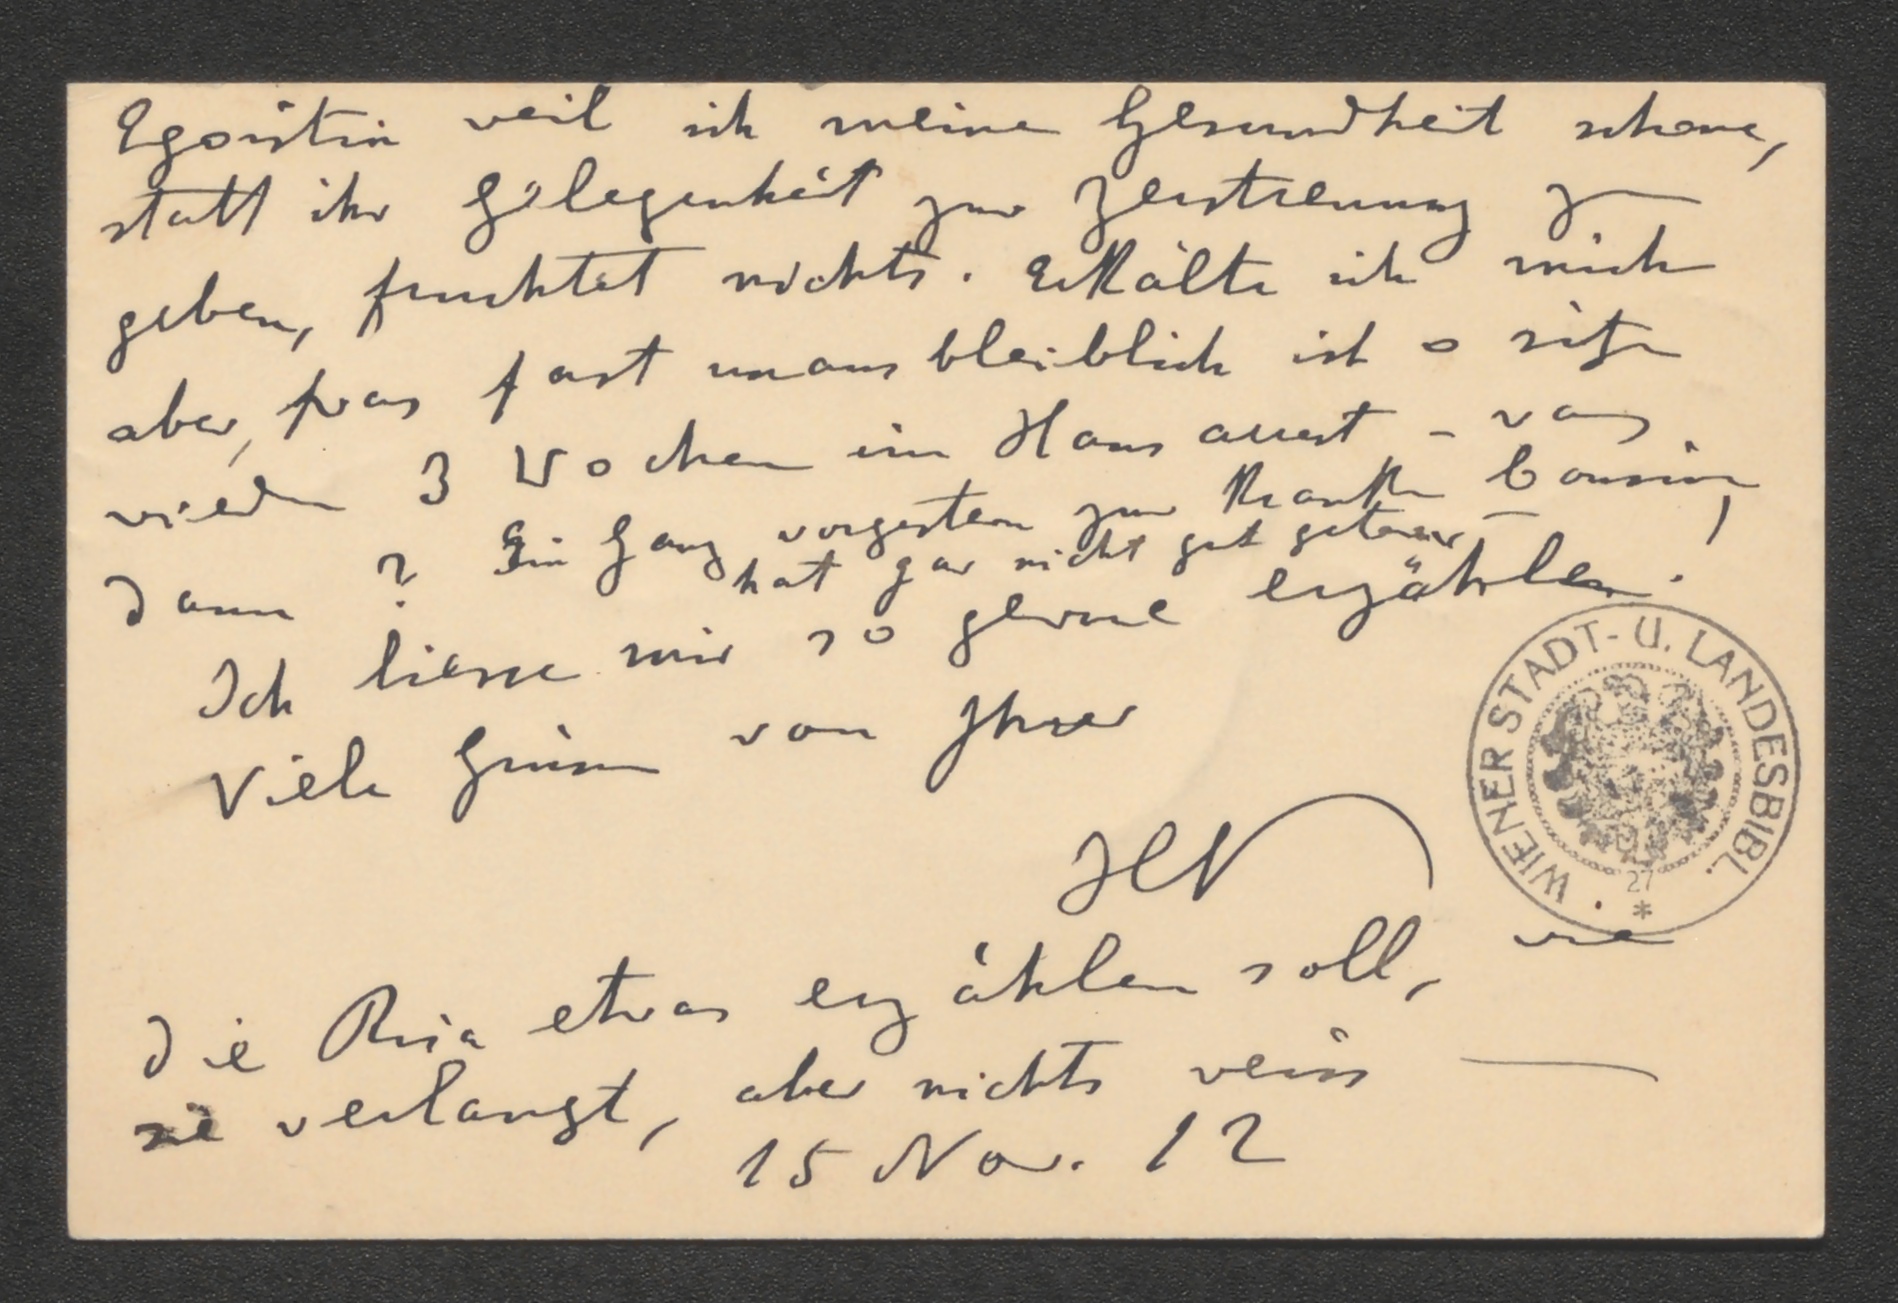 Egoistin weil ich meine Gesundheit schone,
statt ihr Gelegenheit zur Zerstreuung zu
geben, fruchtet nichts. Erkälte ich mich
aber, was fast unausbleiblich ist so sitze
wieder 3 Wochen im Hausarrest – was
dann? Ein Gang vorgestern zur kranken Cousine,
hat gar nicht gut getan –
Ich liesse mir so gerne erzählen.
Viele Grüsse von Ihrer
die Risa etwas erzählen soll, wie
sie verlangt, aber nichts weiss —
15 Nov. 12
WIENER STADT- U. LANDESBIBL.
27
*